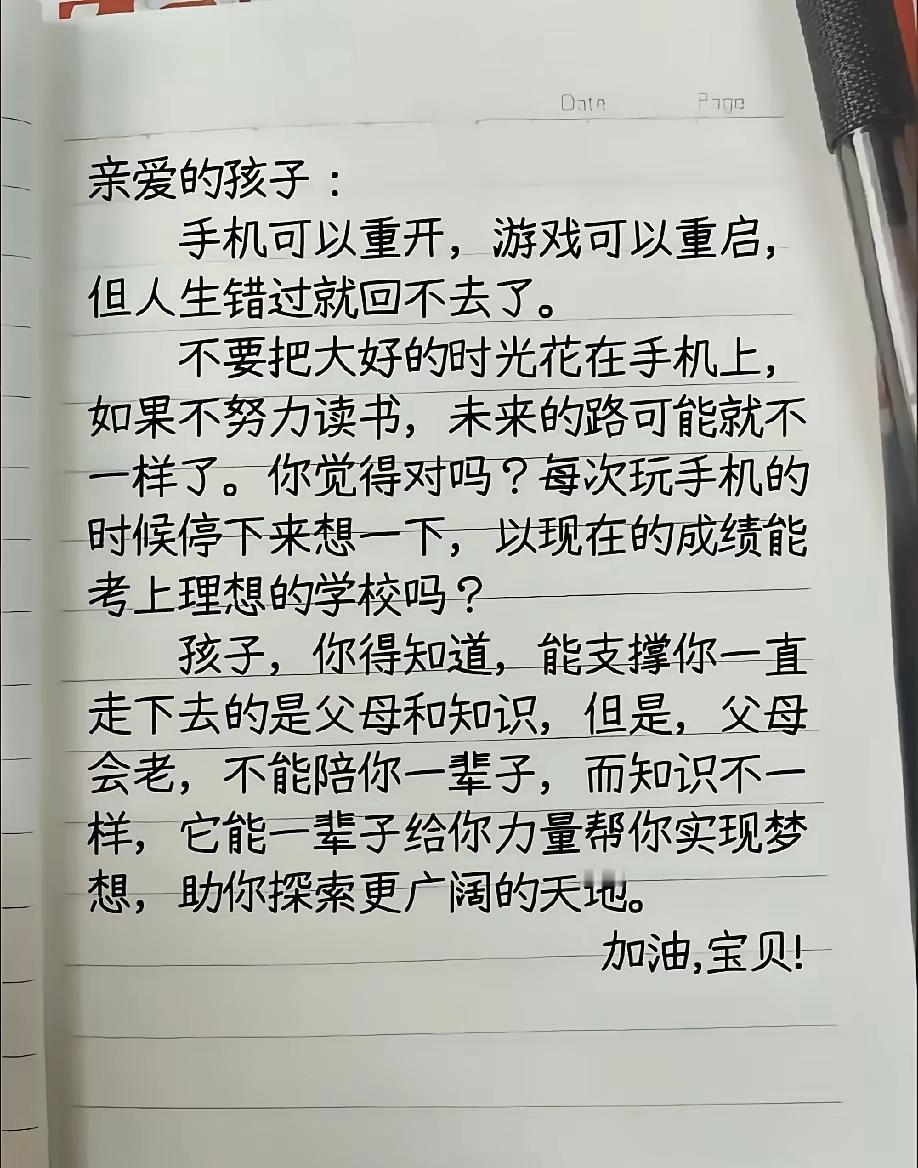 Date Page
亲爱的孩子：
手机可以重开，游戏可以重启，
但人生错过就回不去了。
不要把大好的时光花在手机上，
如果不努力读书，未来的路可能就不
一样了。你觉得对吗？每次玩手机的
时候停下来想一下，以现在的成绩能
考上理想的学校吗？
孩子，你得知道，能支撑你一直
走下去的是父母和知识，但是，父母
会老，不能陪你一辈子，而知识不一
样，它能一辈子给你力量帮你实现梦
想，助你探索更广阔的天地。
加油,宝贝!